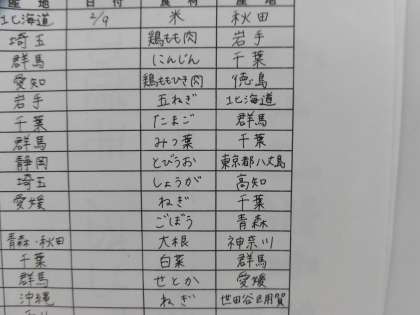 産地 日付 食材 産地
北海道 2/9 米 秋田
埼玉 鶏もも肉 岩手
群馬 にんじん 千葉
愛知 鶏ももひき肉 徳島
岩手 玉ねぎ 北海道
千葉 たまご 群馬
群馬 みつ葉 千葉
静岡 とびうお 東京都八丈島
埼玉 しょうが 高知
愛媛 ねぎ 千葉
ごぼう 青森
青森・秋田 大根 神奈川
千葉 白菜 群馬
群馬 せとか 愛媛
沖縄 ねぎ 世田谷区用賀